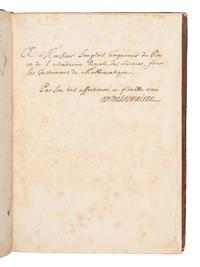 A Monsieur Langlois Ingenieur du Roy
et de l'Academie Royale des Sciences, pour
les Instrumens de Mathematique.
Par Son tres affectionné et fidelle ami